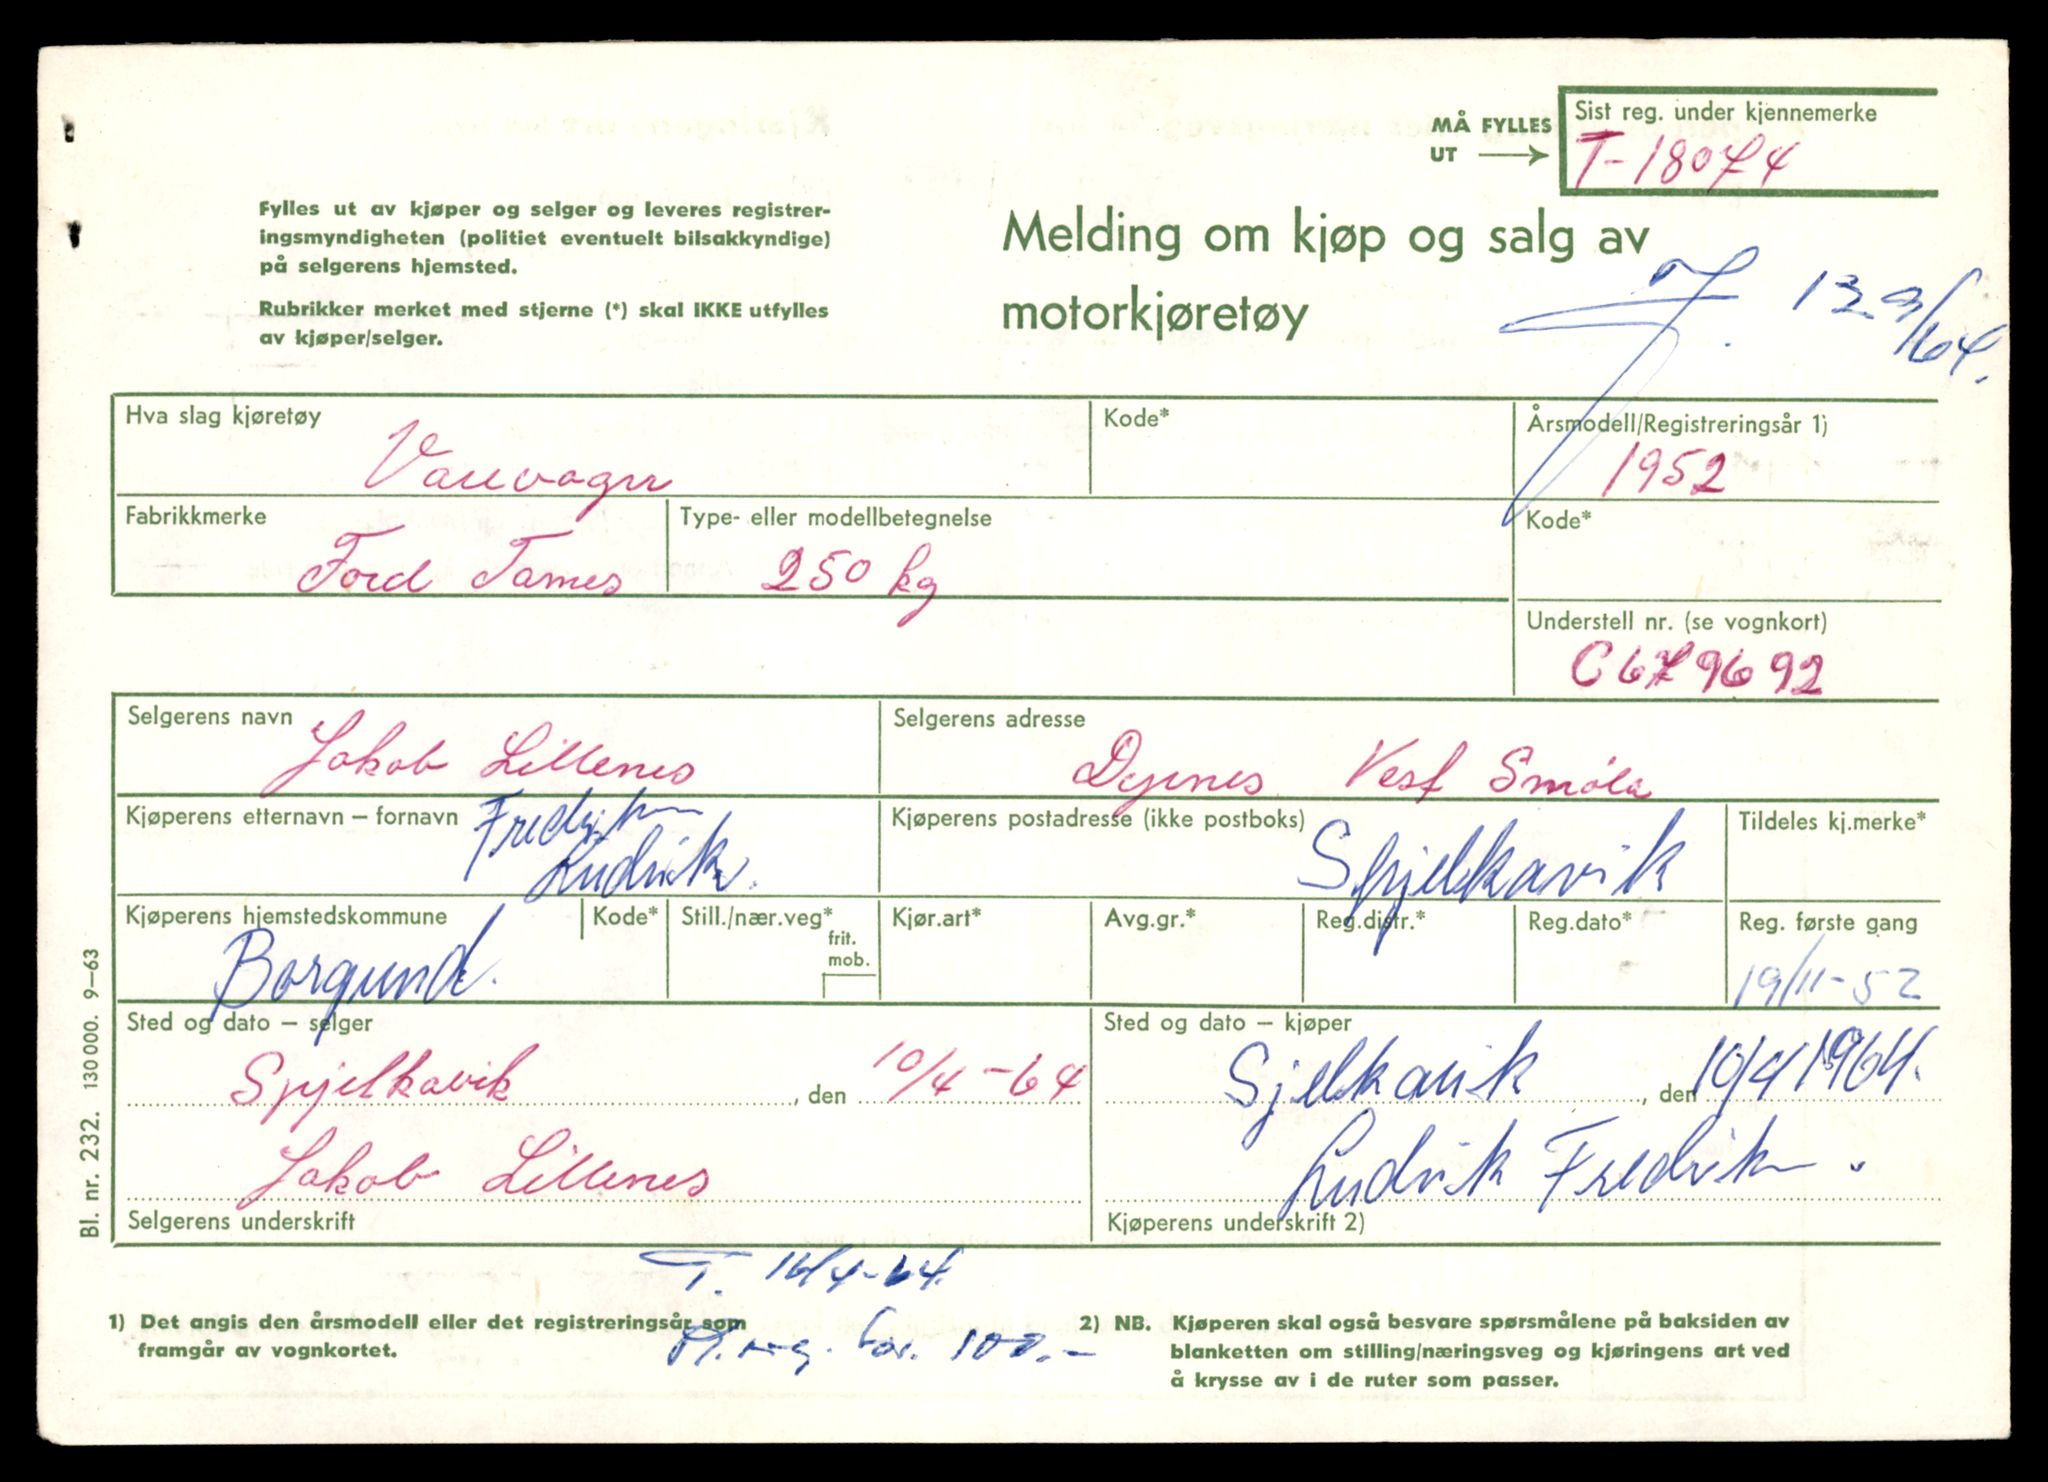 MÅ FYLLES UT →
Sist reg. under kjennemerke
T-18074
Fylles ut av kjøper og selger og leveres registrer-
ingsmyndigheten (politiet eventuelt bilsakkyndige)
på selgerens hjemsted.
Rubrikker merket med stjerne (*) skal IKKE utfylles
av kjøper/selger.
Melding om kjøp og salg av
motorkjøretøy
Hva slag kjøretøy
Varevogn
Kode*
Årsmodell/Registreringsår 1)
1952
Fabrikkmerke
Ford Tames
Type- eller modellbetegnelse
250 kg
Kode*
Understell nr. (se vognkort)
C679692
Selgerens navn
Jakob Lillenes
Selgerens adresse
Dyrnes Vest Smøla
Kjøperens etternavn – fornavn
Fredriksen
Ludvik.
Kjøperens postadresse (ikke postboks)
Spjelkavik
Tildeles kj.merke*
Kjøperens hjemstedskommune
Borgund.
Kode*
Still./nær.veg*
frit.
mob.
Kjør.art*
Avg.gr.*
Reg.distr.*
Reg.dato*
Reg. første gang
19/11-52
Sted og dato – selger
Spjelkavik, den 10/4-64
Jakob Lillenes
Selgerens underskrift
Sted og dato – kjøper
Sjelkavik, den 10/4 1964.
Ludvik Fredriksen.
Kjøperens underskrift 2)
T. 16/4-64.
for. 100.-
1) Det angis den årsmodell eller det registreringsår som
framgår av vognkortet.
2) NB. Kjøperen skal også besvare spørsmålene på baksiden av
blanketten om stilling/næringsveg og kjøringens art ved
å krysse av i de ruter som passer.
Bl. nr. 232. 130 000. 9–63